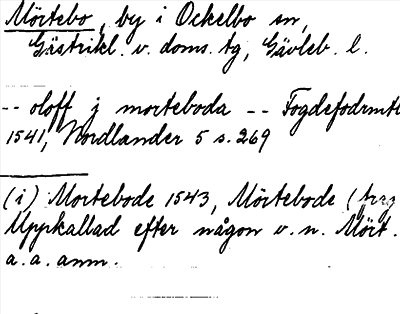 Mörtebo, by i Ockelbo sn,
Gästrikl. v. doms. tg, Gävleb. l.
-- oloff j morteboda -- Fogdefodrmtl
1541, Nordlander 5 s. 269
(i) Mortebode 1543, Mörtebode
Uppkallad efter någon v. n. Mört.
a. a. anm.